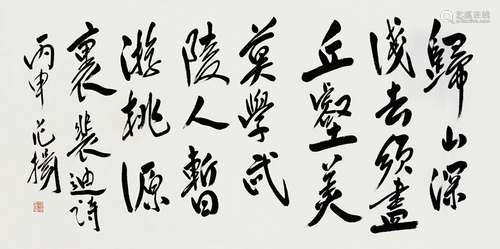 歸山深
淺去須盡
丘壑美
莫學武
陵人暫
游桃源
裏裴迪詩
丙申范揚